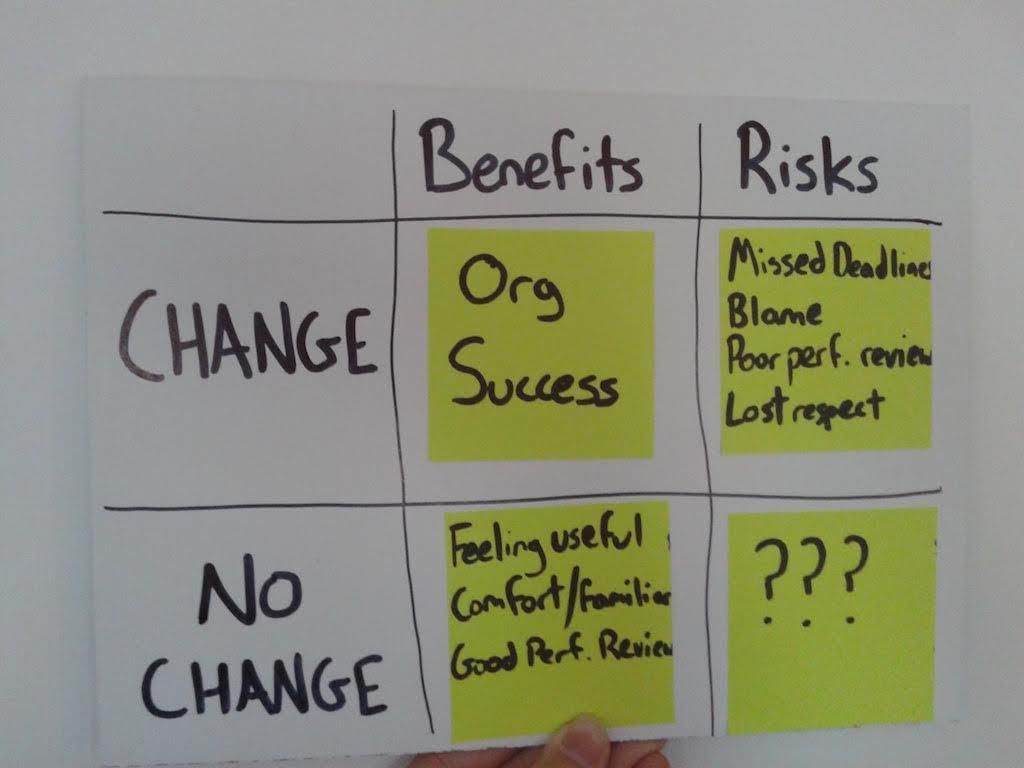 Benefits
Risks
CHANGE
Org
Success
Missed Deadlines
Blame
Poor perf. review
Lost respect
NO
CHANGE
Feeling useful
Comfort/familiar
Good Perf. Review
???